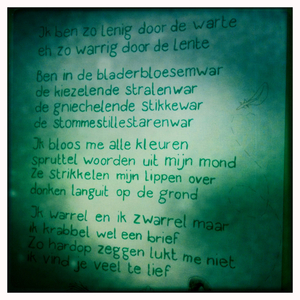 Ik ben zo lenig door de warte
en zo warrig door de lente
Ben in de bladerbloesemwar
de kiezelende stralenwar
de gniechelende stikkewar
de stommestillestarenwar
Ik bloos me alle kleuren
spruttel woorden uit mijn mond
Ze strikkelen mijn lippen over
donken languit op de grond
Ik warrel en ik zwarrel maar
ik krabbel wel een brief
Zo hardop zeggen lukt me niet
ik vind je veel te lief